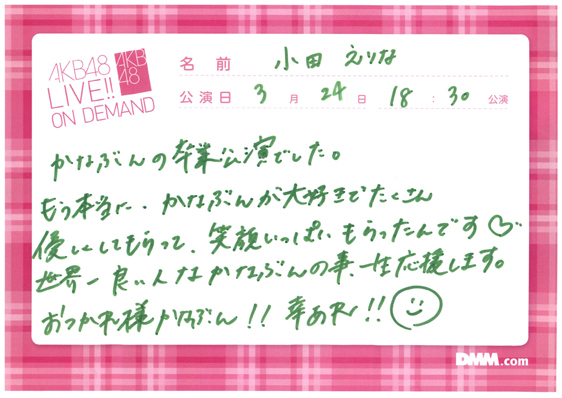 AKB48
LIVE!!
ON DEMAND
AKB
48
名 前 小田 えりな
公演日 3 月 24 日 18 : 30 公演
かなぶんの卒業公演でした。
もう本当に、かなぶんが大好きでたくさん
優しくしてもらって、笑顔いっぱいもらったんです♡
世界一良い人なかなぶんの事、一生応援します。
おつかれ様かなぶん!! 幸あれ!!
DMM.com